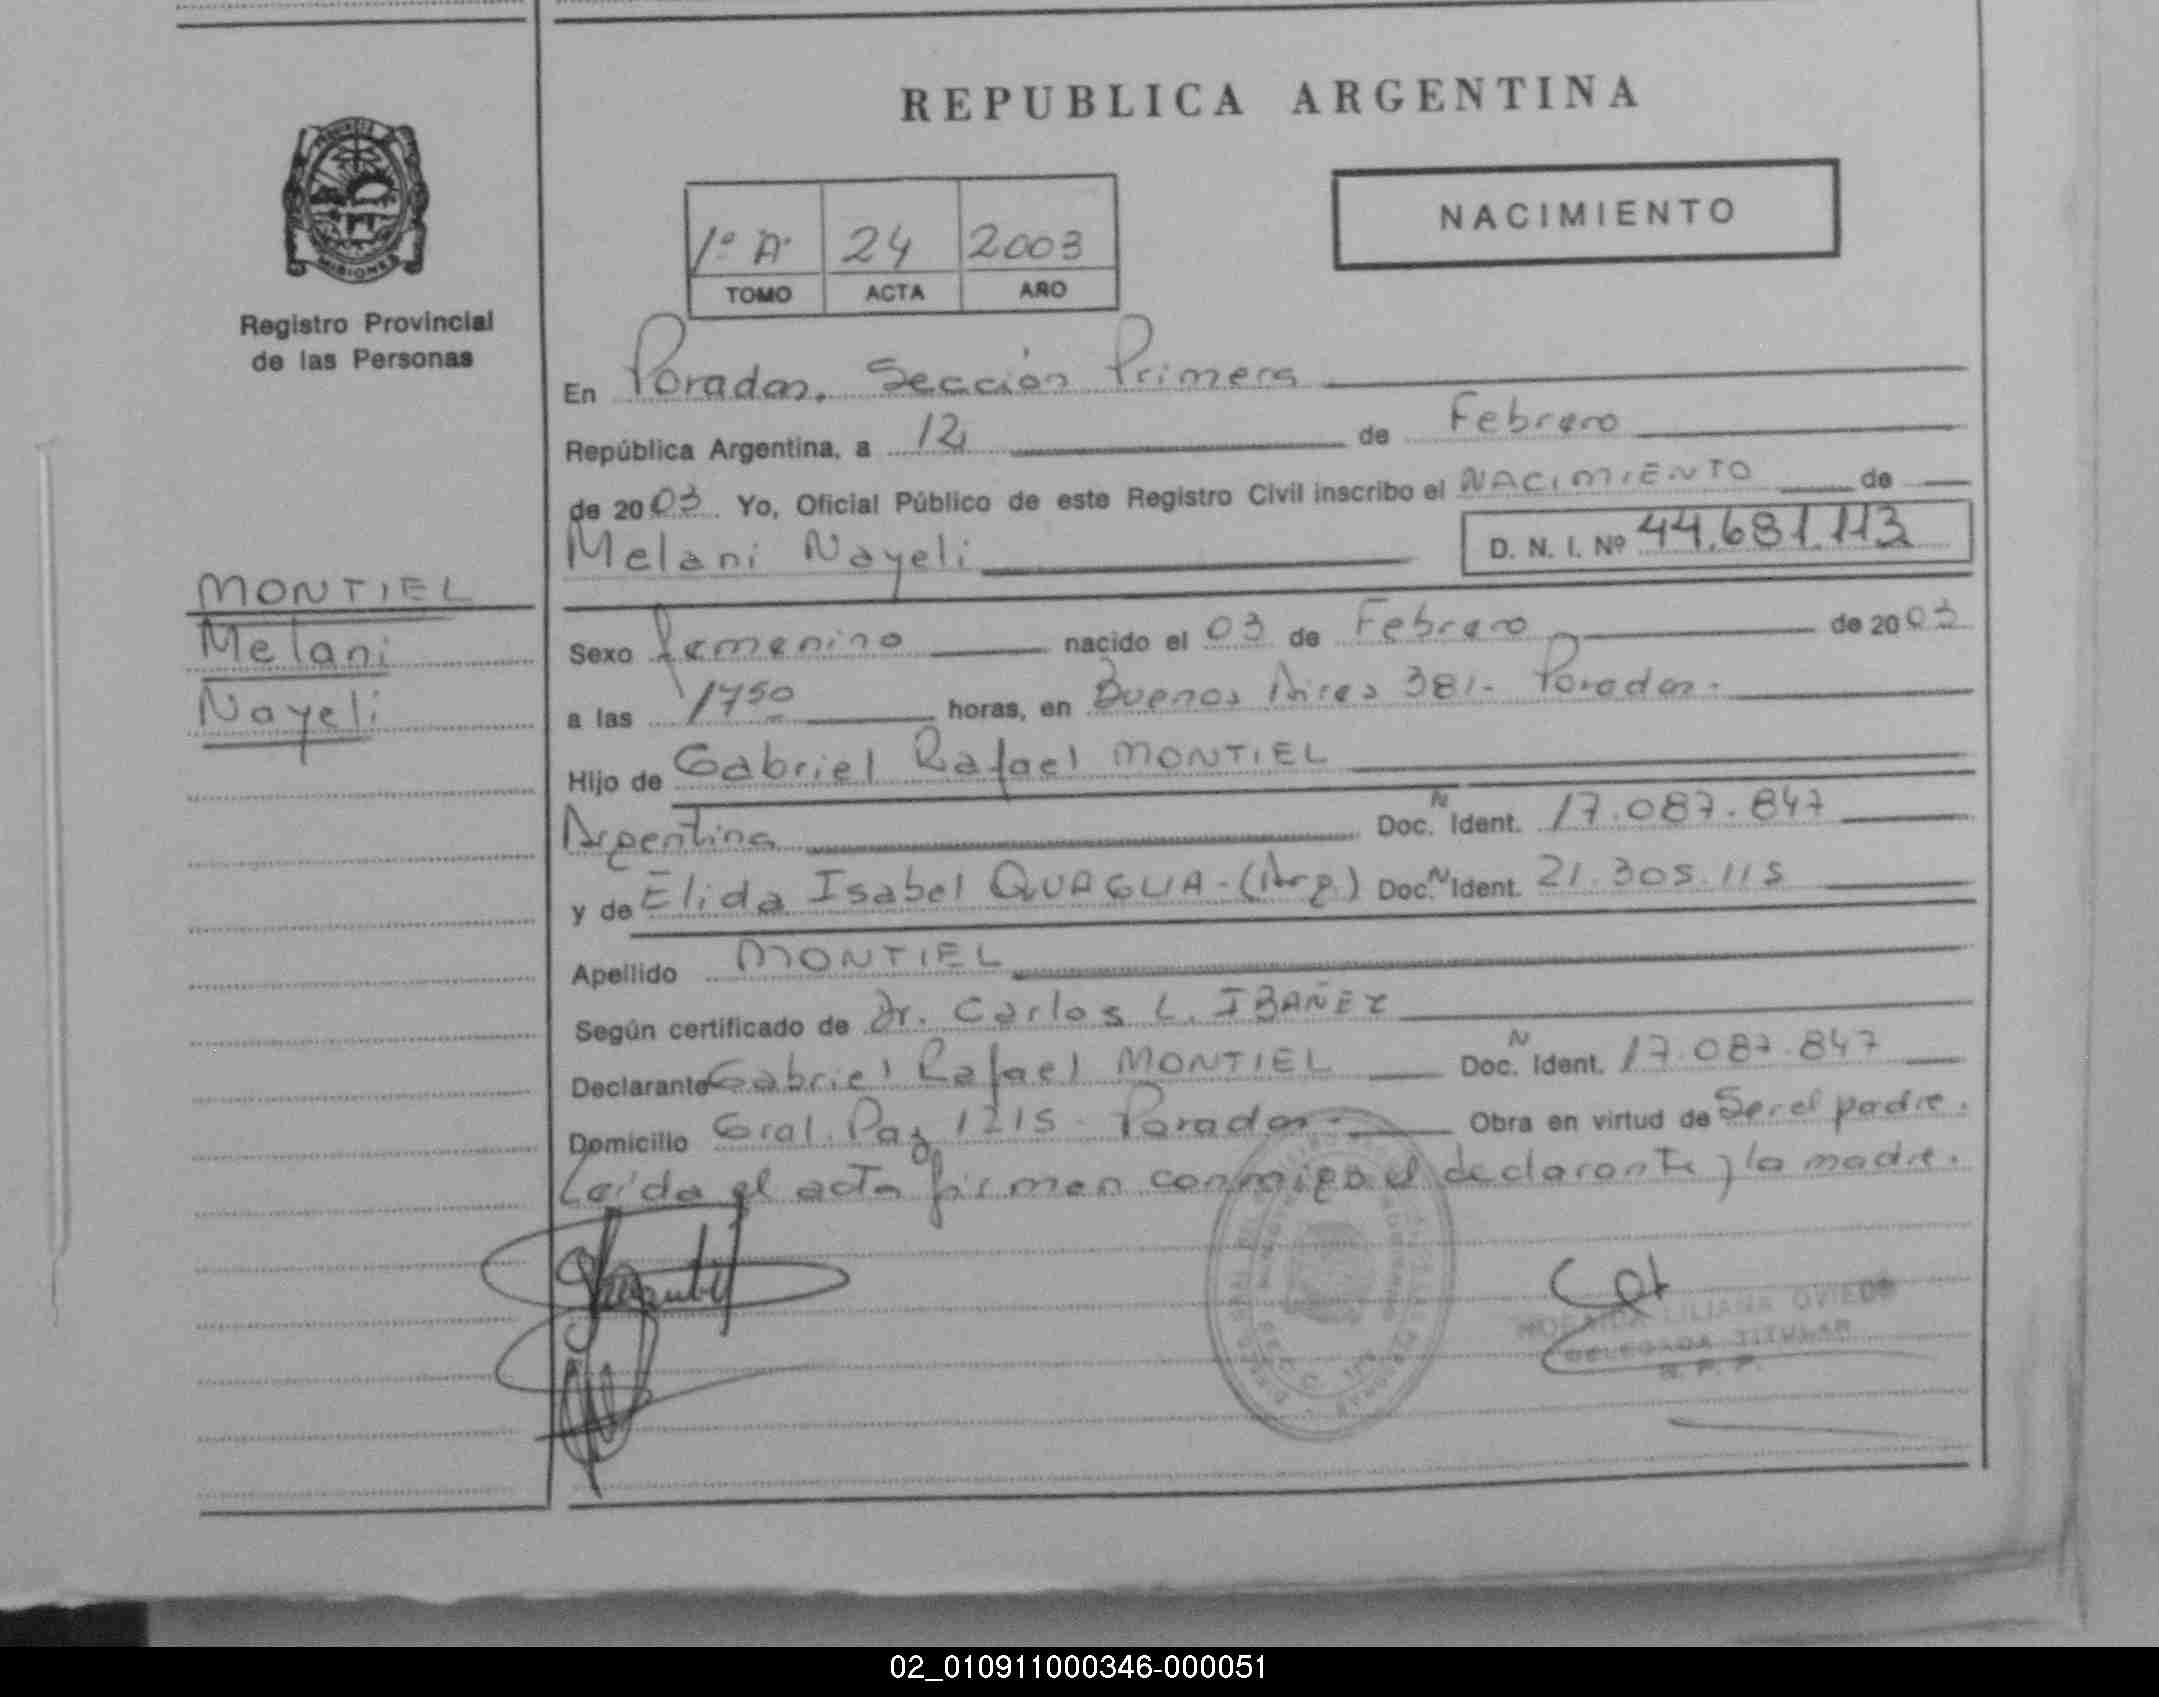 REPUBLICA ARGENTINA
NACIMIENTO
1º A 24 2003
TOMO ACTA AÑO
MISIONES
Registro Provincial
de las Personas
En Posadas, Sección Primera
República Argentina, a 12 de Febrero
de 2003. Yo, Oficial Público de este Registro Civil inscribo el NACIMIENTO de
Melani Nayeli D. N. I. Nº 44.681.113
MONTIEL
Melani
Nayeli
Sexo femenino nacido el 03 de Febrero de 2003
a las 1750 horas, en Buenos Aires 381- Posadas.-
Hijo de Gabriel Rafael MONTIEL
Argentina Doc. N Ident. 17.087.847
y de Elida Isabel QUAGLIA-(Arg.) Doc. N Ident. 21.305.115
Apellido MONTIEL
Según certificado de Dr. Carlos L. IBAÑEZ
Declarante Gabriel Rafael MONTIEL Doc. N Ident. 17.087.847
Domicilio Gral. Paz 1215 - Posadas.- Obra en virtud de Ser el padre.
Leída el acta firman conmigo el declarante y la madre.
LILIANA OVIEDO
DELEGADA TITULAR
R. P. P.
02_010911000346-000051